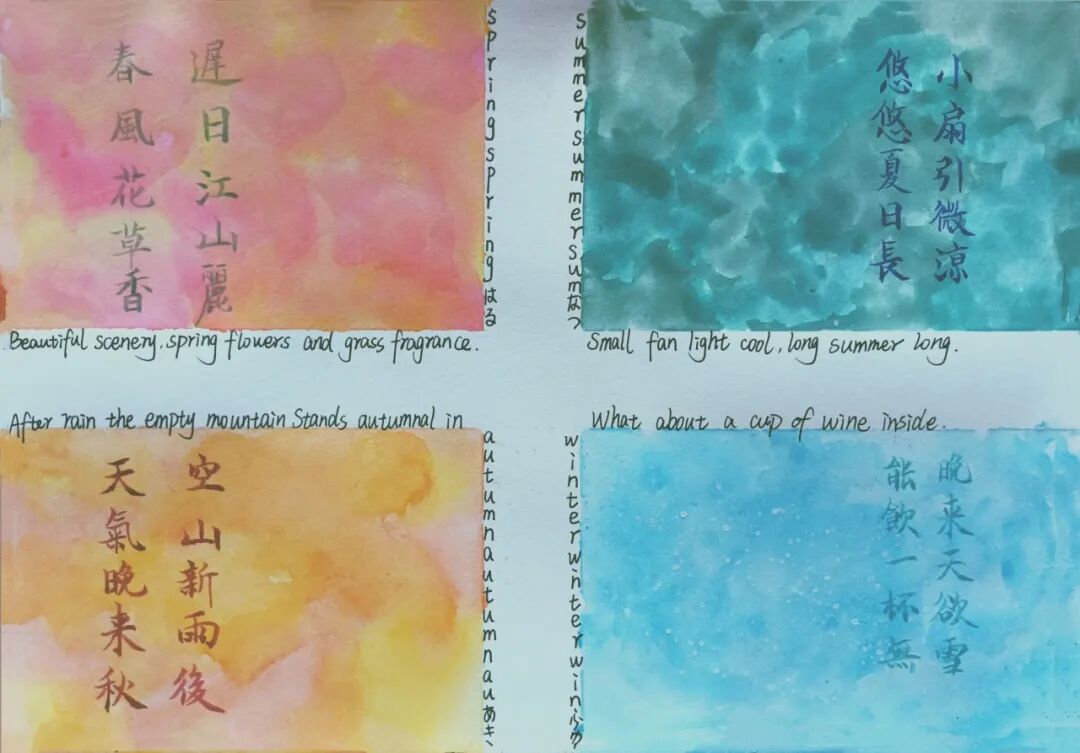 遲日江山麗
春風花草香
springspringはる
Beautiful scenery,spring flowers and grass fragrance.
小扇引微涼
悠悠夏日長
summersummersumなつ
Small fan light cool,long summer long.
After rain the empty mountain Stands autumnal in
空山新雨後
天氣晚来秋
autumnautumnauあき、
What about a cup of wine inside.
晚来天欲雪
能飲一杯無
winterwinterwinふゆ